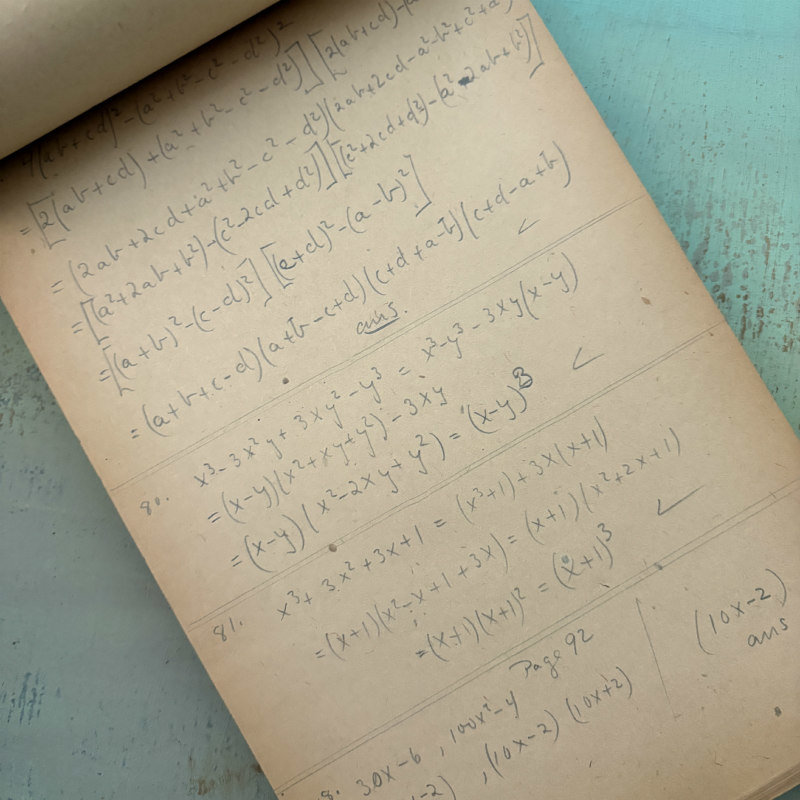 4(ab+cd)² - (a²+b²-c²-d²)²
= [2(ab+cd) + (a²+b²-c²-d²)] [2(ab+cd)-(
= (2ab+2cd+a²+b²-c²-d²)(2ab+2cd-a²-b²+c²+d²)
= [(a²+2ab+b²)-(c²-2cd+d²)] [(c²+2cd+d²)-(a²-2ab+b²)]
= [(a+b)²-(c-d)²] [(c+d)²-(a-b)²]
= (a+b+c-d)(a+b-c+d)(c+d+a-b)(c+d-a+b)
ans.
80. x³-3x²y+3xy²-y³ = x³-y³-3xy(x-y)
= (x-y)(x²+xy+y²)-3xy
= (x-y)(x²-2xy+y²) = (x-y)³
81. x³+3x²+3x+1 = (x³+1)+3x(x+1)
= (x+1)(x²-x+1+3x) = (x+1)(x²+2x+1)
= (x+1)(x+1)² = (x+1)³
Page 92
8. 30x-6, 100x²-4
-2), (10x-2)(10x+2)
(10x-2)
ans